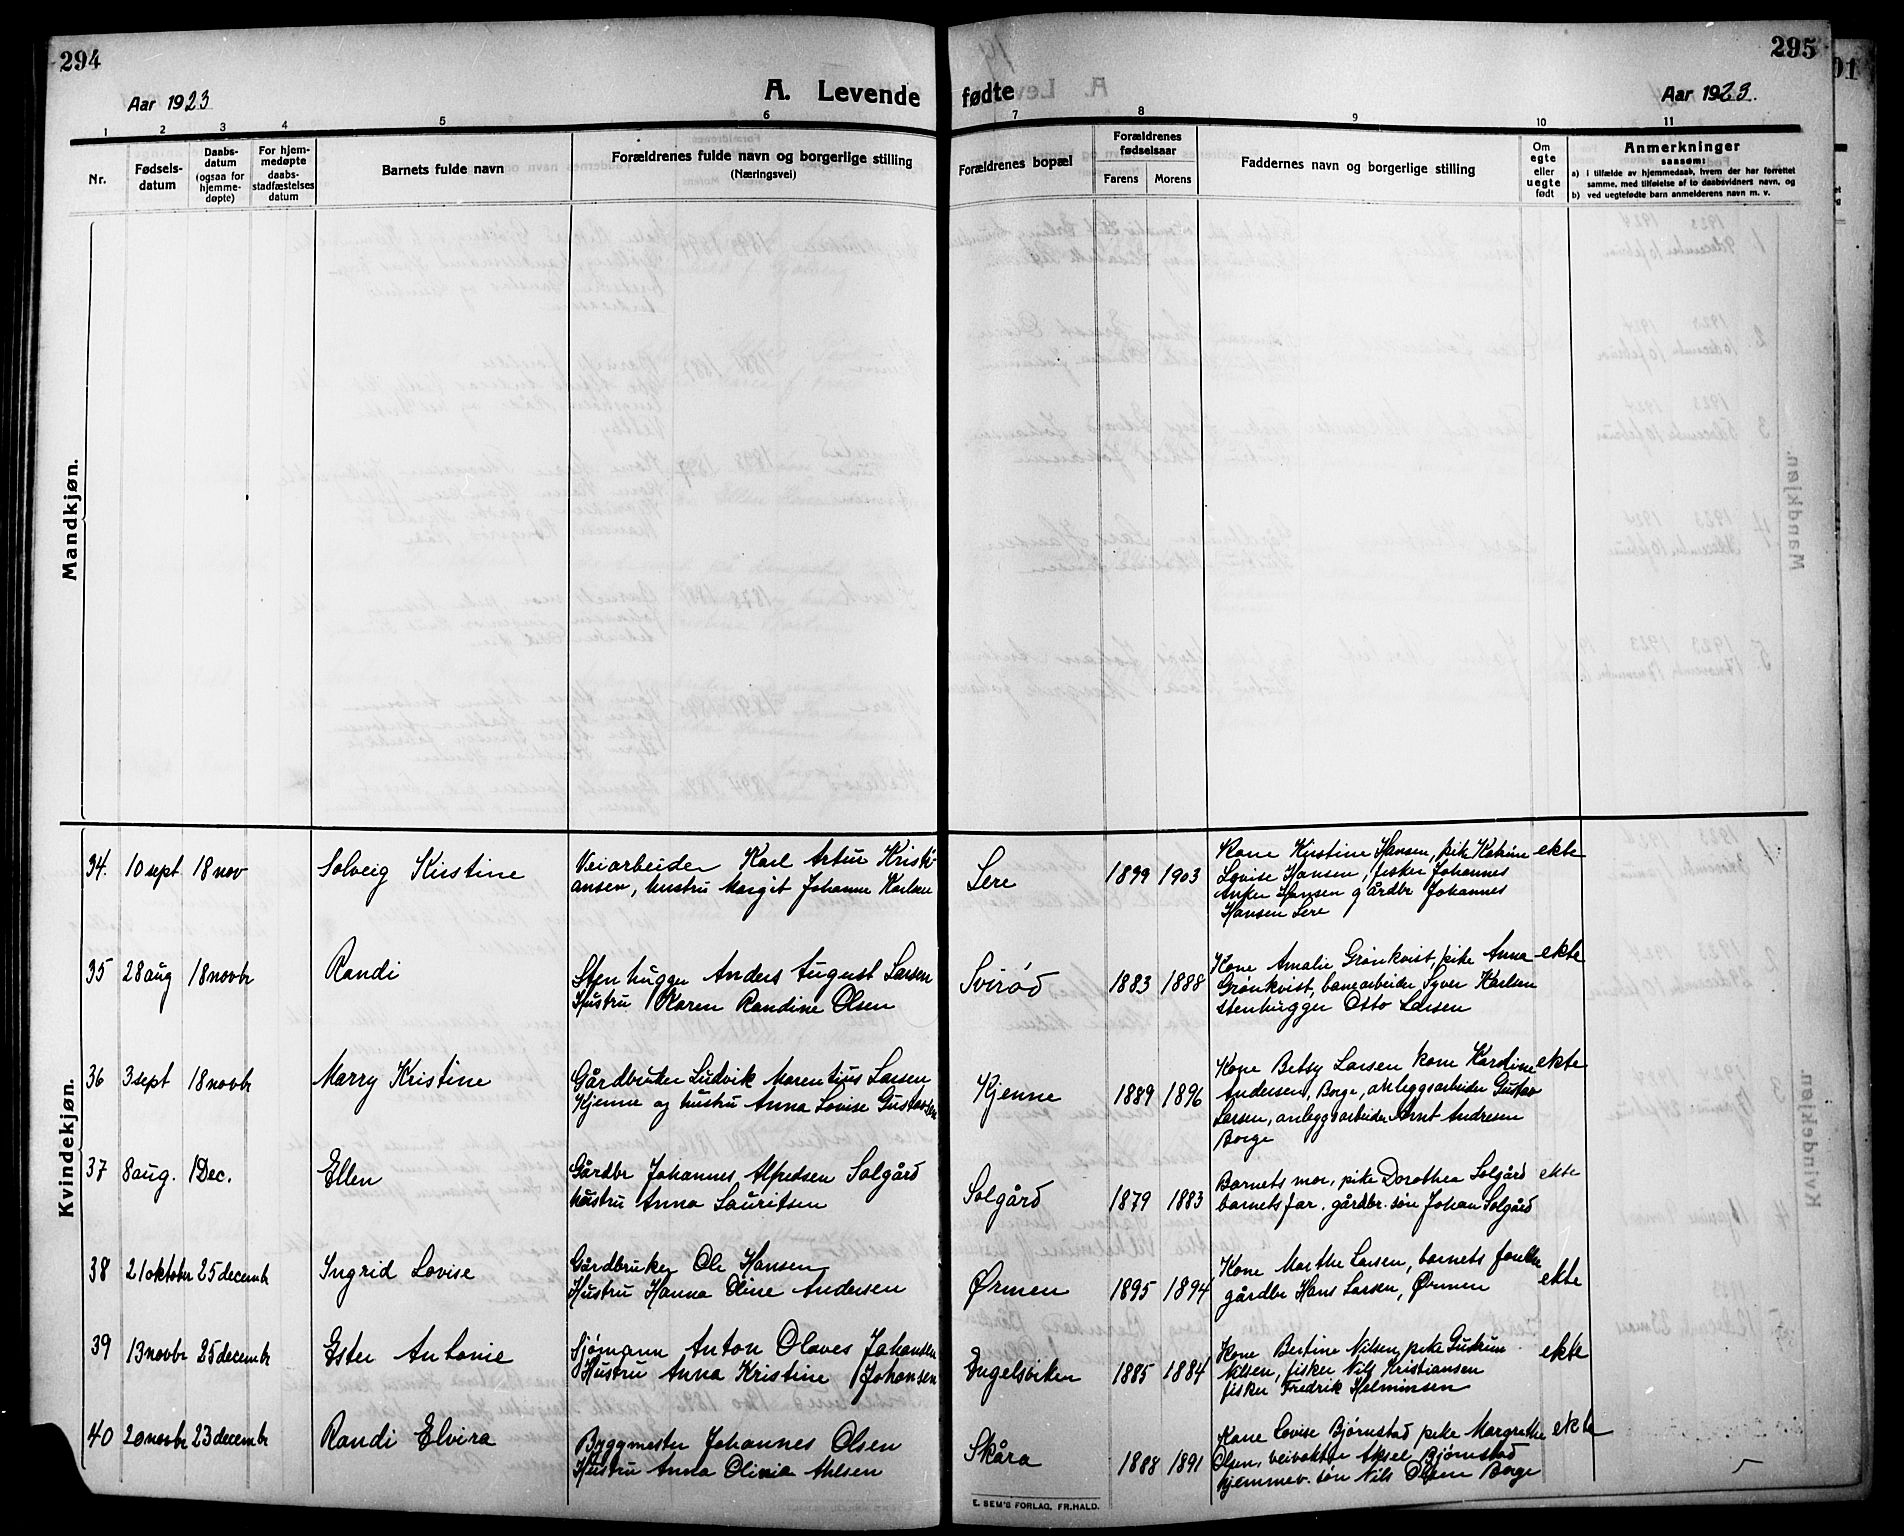 294
295
01
Aar 1923
A. Levende fødte
Aar 1923.
1 2 3 4 5 6 7 8 9 10 11
Nr.
Fødsels-
datum
Daabs-
datum
(ogsaa for
hjemme-
døpte)
For hjem-
medøpte
daabs-
stadfæstelses
datum
Barnets fulde navn
Forældrenes fulde navn og borgerlige stilling
(Næringsvei)
Forældrenes bopæl
Forældrenes
fødselsaar
Farens Morens
Faddernes navn og borgerlige stilling
Om
egte
eller
uegte
født
Anmerkninger
saasom:
a) i tilfælde av hjemmedaab, hvem der har forrettet
samme, med tilføielse af to daabsvidners navn, og
b) ved uegtefødte barn anmelderens navn m. v.
Mandkjøn.
Kvindekjøn.
34. 10 sept 18 nov Solveig Kristine
Veiarbeider Karl Artur Kristi-
ansen, hustru Margit Johanne Karlsen
Lere 1899 1903
Kone Kristine Hansen, pike Katrine ekte
Lovise Hansen, fisker Johannes
Anker Hansen gårdbr Johannes
Hansen Lere
35 28 aug 18 novbr Randi
Stenhugger Anders August Larsen
Hustru Karen Randine Olsen
Svirød 1883 1888
Kone Amalie Grønkvist, pike Anna ekte
Grønkvist, banearbeider Syver Karlsen
stenhugger Otto Larsen
36 3 sept 18 novbr Marry Kristine
Gårdbruker Ludvik Marentius Larsen
Kjenne og hustru Anna Lovise Gustavsen
Kjenne 1889 1896
Kone Betsy Larsen kone Karoline ekte
Andersen, Borge, anleggsarbeider Gustav
Larsen, anleggsarbeider Arnt Andresen
Borge
37 8 aug. 1 Dec. Ellen
Gårdbr Johannes Alfredsen Solgård
hustru Anna Lauritsen
Solgård 1879 1883
Barnets mor, pike Dorothea Solgård ekte
barnets far. gårdbr. søn Johan Solgård
38 21 oktober 25 decembr Ingrid Lovise
Gårdbruker Ole Hansen
Hustru Hanna Oline Andersen
Ørmen 1895 1894
Kone Marthe Larsen, barnets foreldre
gårdbr Hans Larsen, Ørmen ekte
39 13 novbr 25 decembr Ester Antonie
Sjømann Anton Olaves Johansen
Hustru Anna Kristine Johansen
Engelsviken 1885 1884
Kone Bertine Nilsen, pike Gudrun ekte
Nilsen, fisker Nils Kristiansen
fisker Fredrik Helminsen
40 20 novbr 23 decembr Randi Elvira
Byggmester Johannes Olsen
Hustru Anna Olivia Ahlsen
Skåra 1888 1891
Kone Lovise Bjørnstad pike Margrethe ekte
Olsen, veivokter Aksel Bjørnstad
hjemmev. søn Nils Olsen Borge
E. SEM'S FORLAG, FR.HALD.